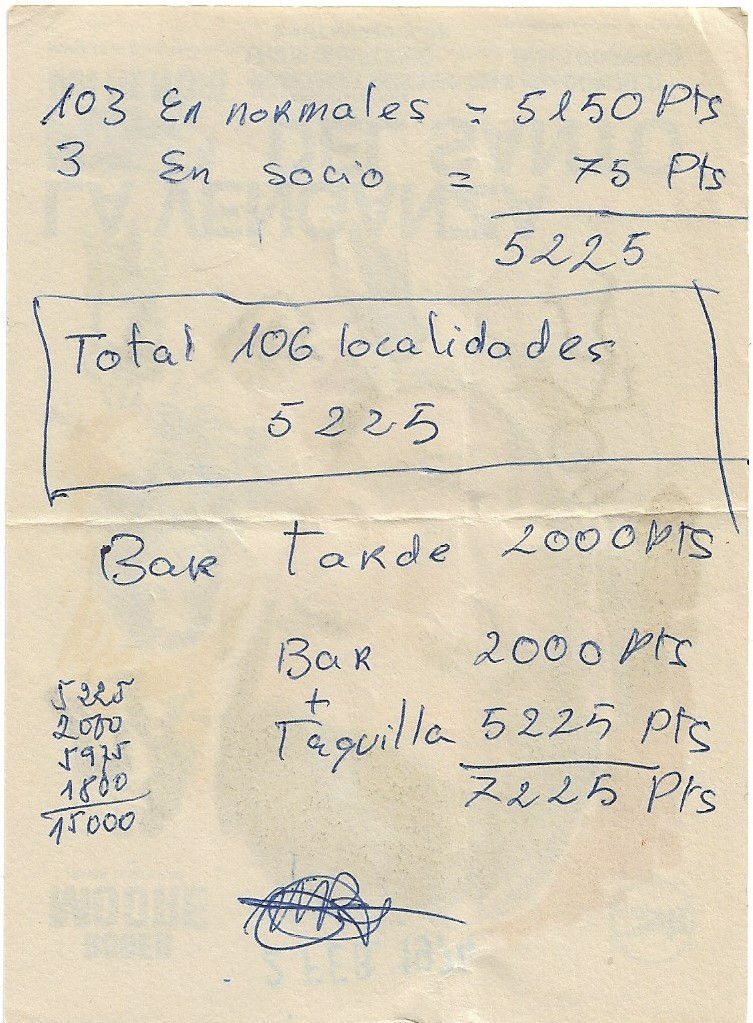 103 En normales = 5150 Pts
3 En socio = 75 Pts
5225
Total 106 localidades
5225
Bar tarde 2000 Pts
Bar 2000 Pts
+
Taquilla 5225 Pts
7225 Pts
5225
2000
5975
1800
15000